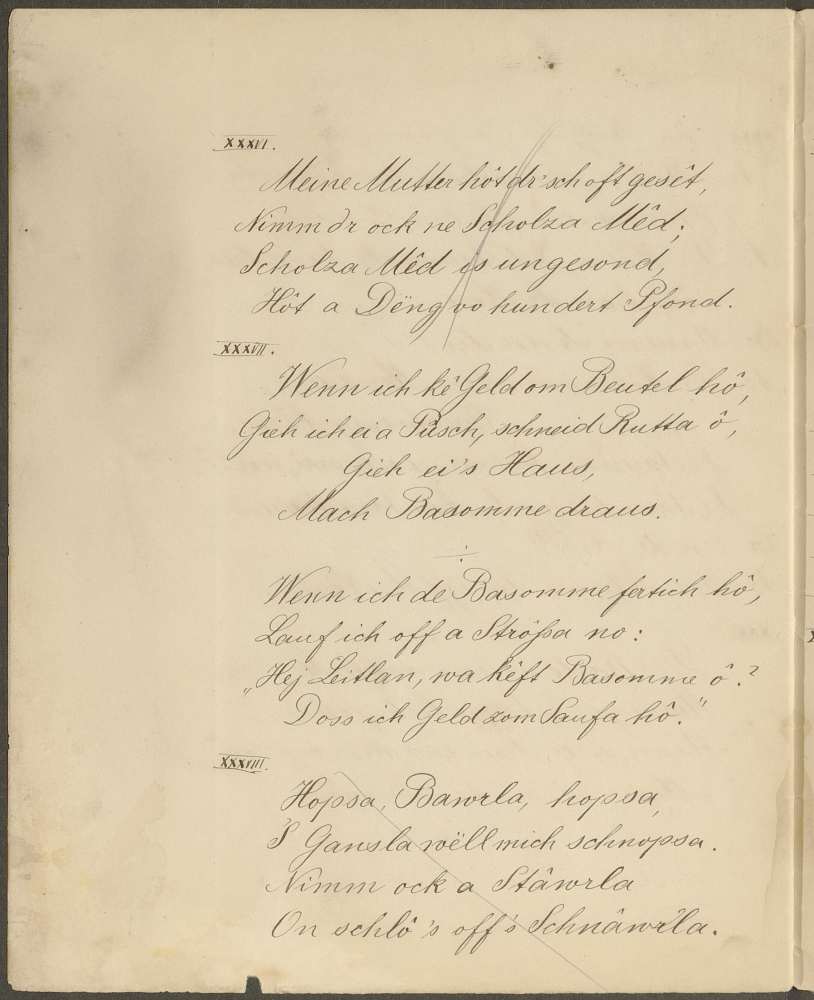 XXXVI.
Meine Mutter hôt dr'sch oft gesêt,
Nimm dr ock ne Scholza Mêd;
Scholza Mêd is ungesond,
Hôt a Dëng vo hundert Pfond.
XXXVII.
Wenn ich kê Geld om Beutel hô,
Gieh ich ei a Pusch, schneid Rutta ô,
Gieh ei's Haus,
Mach Basomme draus.
Wenn ich de Basomme fertich hô,
Lauf ich off a Strößa no:
„Hej Leitlan, wa kêft Basomme ô?
Doss ich Geld zom Saufa hô."
XXXVIII.
Hopsa, Bawrla, hopsa,
'S Gansla wëll mich schnopsa.
Nimm ock a Stâwrla
On schlô's off's Schnâwrla.